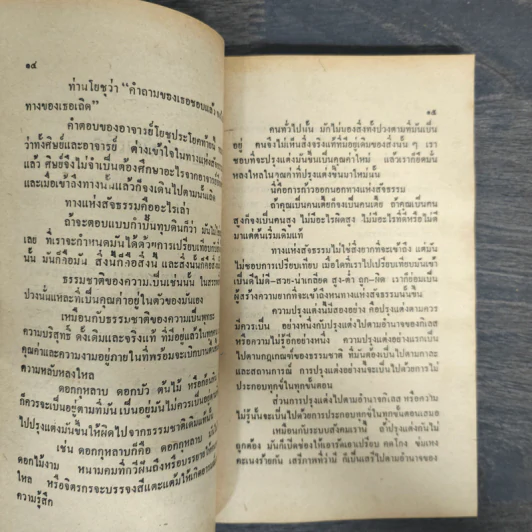 ๑๔
ท่านโยชุว่า “คำถามของเธอชอบแล้ว
ทางของเธอเถิด”
คำตอบของอาจารย์โยชุประโยคท้ายนี้
ว่าทั้งศิษย์และอาจารย์ ต่างเข้าใจในทางแห่งสัจ
แล้ว ศิษย์จึงไม่จำเป็นต้องศึกษาอะไรจากอาจารย์
และเมื่อเข้าถึงทางนั้นแล้วก็จงเดินไปตามนั้นเถิด
ทางแห่งสัจธรรมคืออะไรเล่า
ถ้าจะตอบแบบกำปั้นทุบดินก็ว่า มันไม่
เลย ที่เราจะกำหนดมันได้ด้วยการเปรียบเทียบ
นั้น มันก็คือมัน สิ่งนี้ก็คือสิ่งนี้ และสิ่งนั้นก็คือสิ่ง
ธรรมชาติของความเป็นเช่นนั้น
ปรุงนั้นแหละที่เป็นคุณค่าอยู่ในตัวของมันเอง
เหมือนกับธรรมชาติของความเป็นพุทธะ
ความบริสุทธิ์ ดั้งเดิมและจริงแท้ ที่มีอยู่แล้วใน
คุณค่าและความงามอยู่ภายในที่พร้อมจะเบิกบาน
ความหลับหลงใหล
ดอกกุหลาบ ดอกบัว ต้นไม้ หรือก้อนหิน
ก็ควรจะเป็นอยู่ตามที่มันเป็นอยู่ มันไม่ควรเป็นอยู่
ไปปรุงแต่งมันขึ้นให้ผิดไปจากธรรมชาติเดิมแท้
เช่น ดอกกุหลาบก็คือ ดอกกุหลาบ
ดอกไม้งาม หนามคมที่กวีฝันถึงหรือบรรยาย
ไหล หรือจิตรกรจะบรรจงสีแตะแต้มให้เกิด
ความรู้สึก
๑๕
คนทั่วไปนั้น มักไม่มองสิ่งทั้งปวงตามที่มันเป็น
อยู่ คนจึงไม่เห็นสิ่งจริงแท้ที่มีอยู่เดิมของสิ่งนั้น ๆ เรา
ชอบที่จะปรุงแต่งมันขึ้นเป็นคุณค่าใหม่ แล้วเราก็ยึดมั่น
หลงใหลในคุณค่าที่ปรุงแต่งขึ้นมาใหม่นั้น
นี่คือการก้าวออกนอกทางแห่งสัจธรรม
ถ้าคุณเป็นคนเตี้ยก็จงเป็นคนเตี้ย ถ้าคุณเป็นคน
สูงก็จงเป็นคนสูง ไม่มีอะไรผิดสูง ไม่มีอะไรที่ดีหรือไม่ดี
มาแต่ต้นเริ่มเดิมแท้
ทางแห่งสัจธรรมไม่ใช่สิ่งยากที่จะเข้าถึง แต่มัน
ไม่ชอบการเปรียบเทียบ เมื่อใดที่เราไปเปรียบเทียบมันเข้า
เป็นดีไม่ดี-สวย-น่าเกลียด สูง-ต่ำ ถูก-ผิด เราก็ย่อมเป็น
ผู้สร้างความยากที่จะเข้าถึงหนทางแห่งสัจธรรมนั้นขึ้น
ความปรุงแต่งนั้นมีสองอย่าง คือปรุงแต่งตามควร
มีควรเป็น อย่างหนึ่งกับปรุงแต่งไปตามอำนาจของกิเลส
หรือความไม่รู้อีกอย่างหนึ่ง ความปรุงแต่งอย่างแรกเป็น
ไปตามกฎเกณฑ์ของธรรมชาติ ที่มันต้องเป็นไปตามกาละ
และสถานการณ์ การปรุงแต่งอย่างนี้จะเป็นไปด้วยการไม่
ประกอบทุกข์ในทุกขั้นตอน
ส่วนการปรุงแต่งไปตามอำนาจกิเลส หรือความ
ไม่รู้นั้นจะเป็นไปด้วยการประกอบทุกข์ในทุกขั้นตอนเสมอ
เหมือนกับระบบสังคมเรานี้ ถ้าปรุงแต่งกันไม่
ถูกต้อง มันก็เปิดช่องให้เอารัดเอาเปรียบ คดโกง ข่มเหง
คะเนงร้ายกัน เสรีภาพที่ว่ามี ก็เป็นเสรีไปตามอำนาจของ